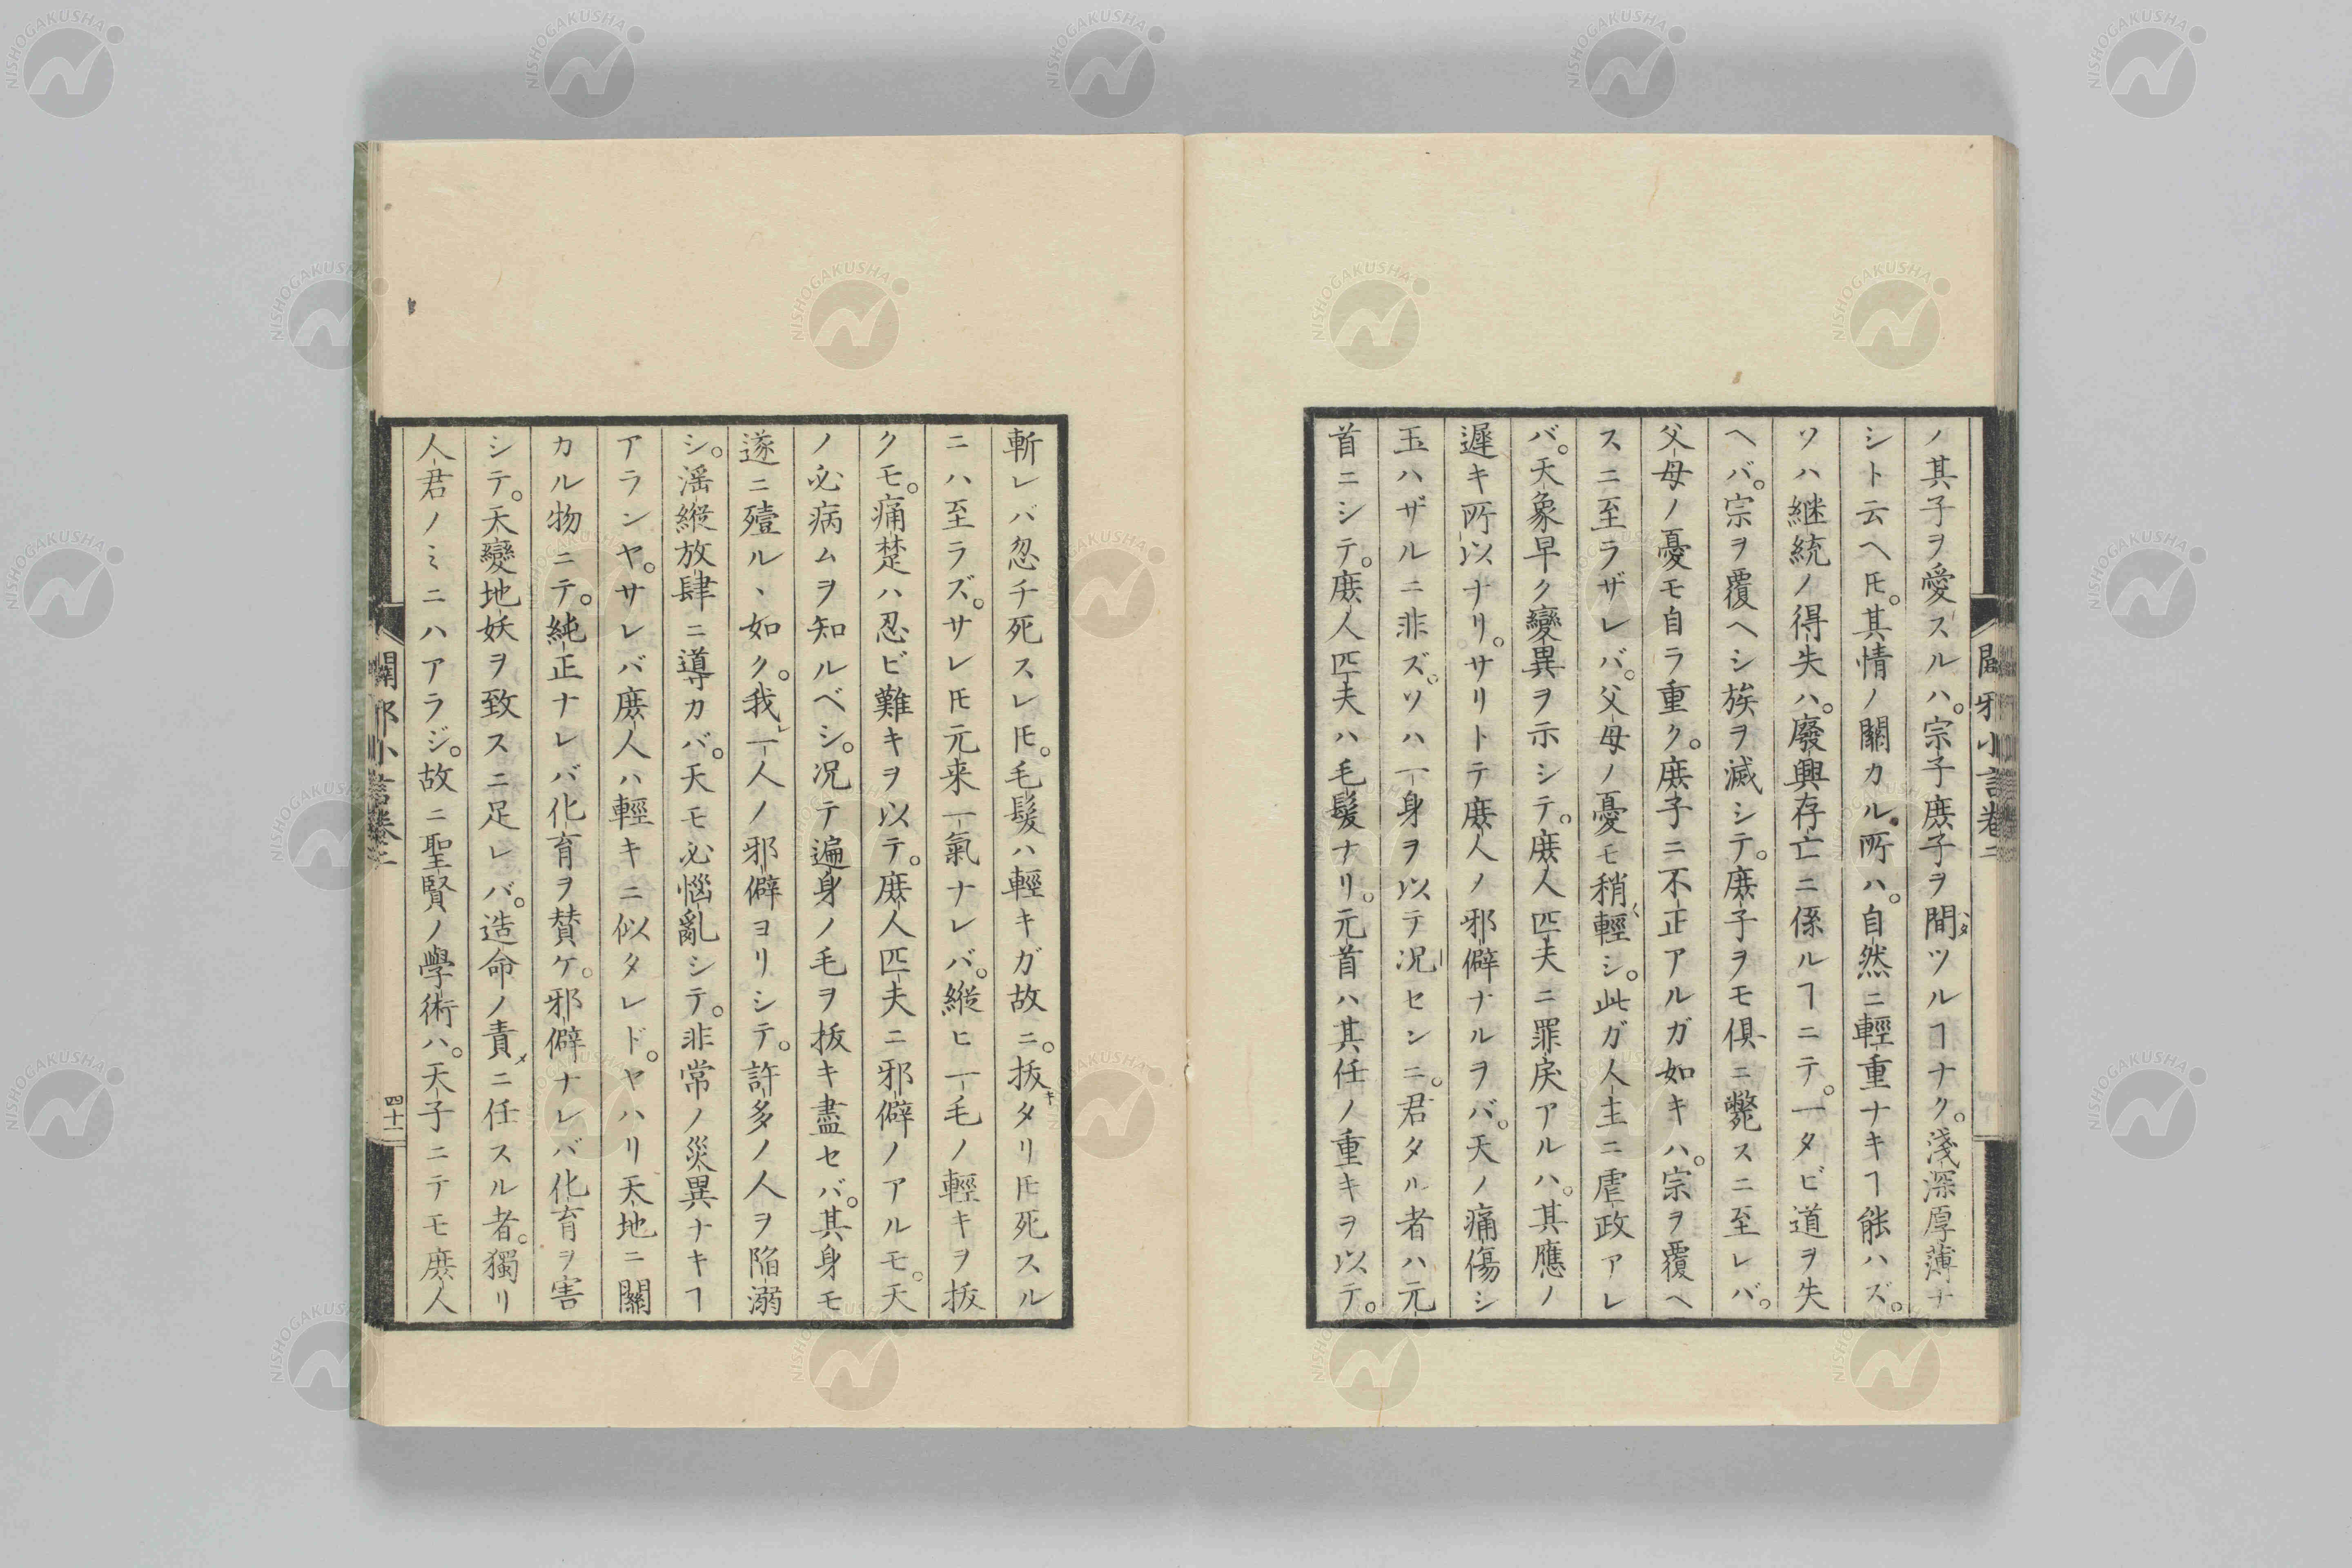 ノ其子ヲ愛スルハ。宗子庶子ヲ間ツルヿナク。淺深厚薄ナ
シト云ヘ𪜈。其情ノ關カル所ハ。自然ニ輕重ナキヿ能ハズ。
ソハ継統ノ得失ハ。廢興存亡ニ係ルヿニテ。一タビ道ヲ失
ヘバ。宗ヲ覆ヘシ族ヲ滅シテ。庶子ヲモ倶ニ斃スニ至レバ。
父母ノ憂モ自ラ重ク。庶子ニ不正アルガ如キハ。宗ヲ覆ヘ
スニ至ラザレバ。父母ノ憂モ稍輕シ。此ガ人主ニ虐政アレ
バ。天象早ク變異ヲ示シテ。庶人匹夫ニ罪戻アルハ。其應ノ
遲キ所以ナリ。サリトテ庶人ノ邪僻ナルヲバ。天ノ痛傷シ
玉ハザルニ非ズ。ソハ一身ヲ以テ况センニ。君タル者ハ元
首ニシテ。庶人匹夫ハ毛髮ナリ。元首ハ其任ノ重キヲ以テ。
闢邪小言卷二
斬レバ忽チ死スレ𪜈。毛髮ハ輕キガ故ニ。抜タリ𪜈死スル
ニハ至ラズ。サレ𪜈元来一氣ナレバ。縦ヒ一毛ノ輕キヲ抜
クモ。痛楚ハ忍ビ難キヲ以テ。庶人匹夫ニ邪僻ノアルモ。天
ノ必病ムヲ知ルベシ。况テ遍身ノ毛ヲ抜キ盡セバ。其身モ
遂ニ殪ルヽ如ク。我一人ノ邪僻ヨリシテ。許多ノ人ヲ陥溺
シ。滛縦放肆ニ導カバ。天モ必惱亂シテ。非常ノ災異ナキヿ
アランヤ。サレバ庶人ハ輕キニ似タレド。ヤハリ天地ニ關
カル物ニテ。純正ナレバ化育ヲ賛ケ。邪僻ナレバ化育ヲ害
シテ。天變地妖ヲ致スニ足レバ。造命ノ責ニ任スル者。獨リ
人君ノミニハアラジ。故ニ聖賢ノ學術ハ。天子ニテモ庶人
闢邪小言卷二
四十一
NISHOGAKUSHA